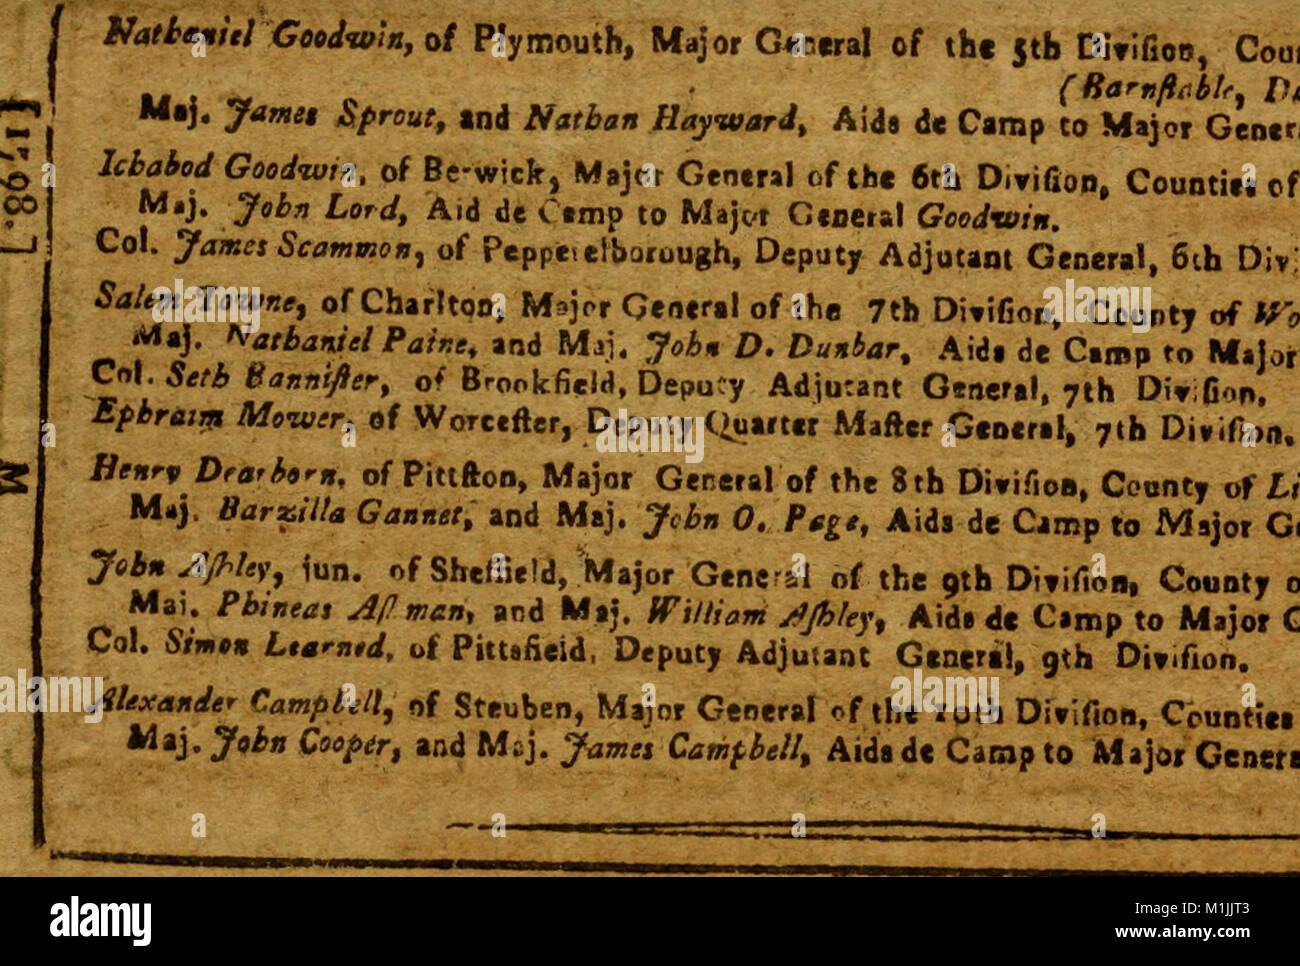 Nathaniel Goodwin, of Plymouth, Major General of the 5th Diviſion, Coun
(Barnſtable, Du
Maj. James Sprout, and Nathan Hayward, Aids de Camp to Major Genera
Ichabod Goodwin, of Berwick, Major General of the 6th Diviſion, Counties of
Maj. John Lord, Aid de Camp to Major General Goodwin.
Col. James Scammon, of Pepperelborough, Deputy Adjutant General, 6th Divi
Salem Towne, of Charlton, Major General of the 7th Diviſion, County of Wo
Maj. Nathaniel Paine, and Maj. John D. Dunbar, Aids de Camp to Major
Col. Seth Banniſter, of Brookfield, Deputy Adjutant General, 7th Diviſion.
Ephraim Mower, of Worceſter, Deputy Quarter Maſter General, 7th Diviſion.
Henry Dearborn, of Pittſton, Major General of the 8th Diviſion, County of Li
Maj. Barzilla Gannet, and Maj. John O. Page, Aids de Camp to Major Ge
John Aſhley, jun. of Sheffield, Major General of the 9th Diviſion, County o
Maj. Phineas Aſhman, and Maj. William Aſhley, Aids de Camp to Major G
Col. Simon Learned, of Pittsfield, Deputy Adjutant General, 9th Diviſion.
Alexander Campbell, of Steuben, Major General of the 10th Diviſion, Counties
Maj. John Cooper, and Maj. James Campbell, Aids de Camp to Major Genera
[1798.]
M
alamy
Image ID: M1JJT3
www.alamy.com